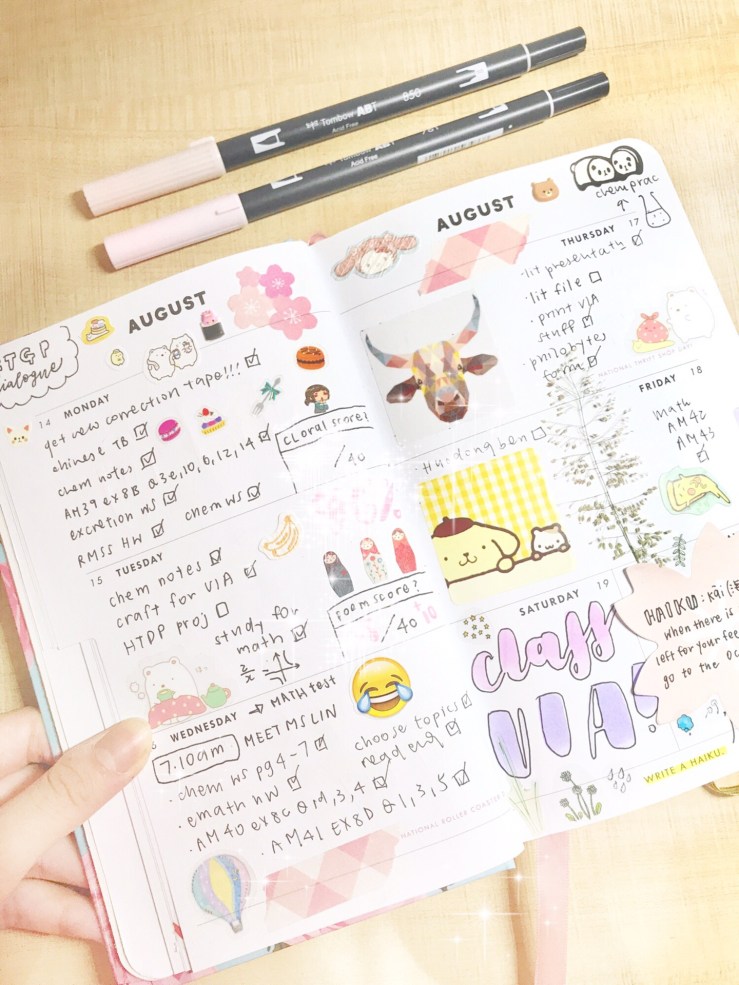 Tombow ABT 850
Acid Free
Tombow ABT
Acid Free
AUGUST
dialogue
14 MONDAY
get new correction tape!!!
chinese TB
chem notes
AM39 EX8B Q3e,10,6,12,14
excretion WS
chem WS
RMSS HW
CLoral score?
/40
15 TUESDAY
chem notes
craft for VIA
HTDP proj
study for
math
Foem score?
/40
WEDNESDAY
→ MATH test
7.10am
MEET MS LIN
· chem ws pg 4-7
· emath HW
· AM40 EX8C Q1d,3,4
· AM41 EX8D Q1,3,5
choose topics
read
NATIONAL ROLLER COASTER
AUGUST
chem prac
THURSDAY 17
· lit presentatn
· lit file
· print VIA
stuff
· philobytes
form
NATIONAL THRIFT SHOP DAY
FRIDAY 18
math
AM42
AM43
Huodong ben
SATURDAY 19
class
VIA!
HAIKU: kai
when there is
left for your fee
go to the oc
WRITE A HAIKU.